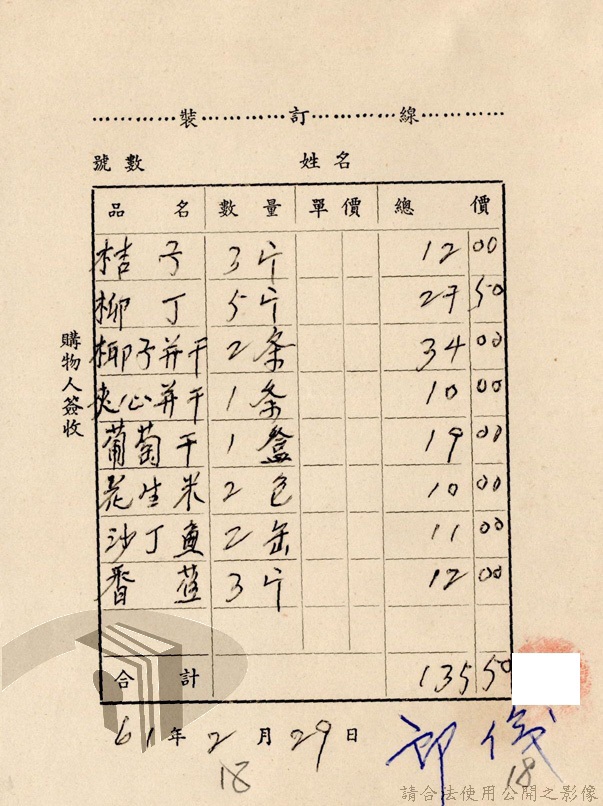 裝訂線
號數 姓名
品名 數量 單價 總價
桔子 3斤 12 00
柳丁 5斤 27 50
椰子并干 2条 34 00
夾心并干 1条 10 00
葡萄干 1盒 19 00
花生米 2包 10 00
沙丁魚 2缶 11 00
香蕉 3斤 12 00
合計 135 50
購物人簽收
61年2月29日
18 18
請合法使用公開之影像